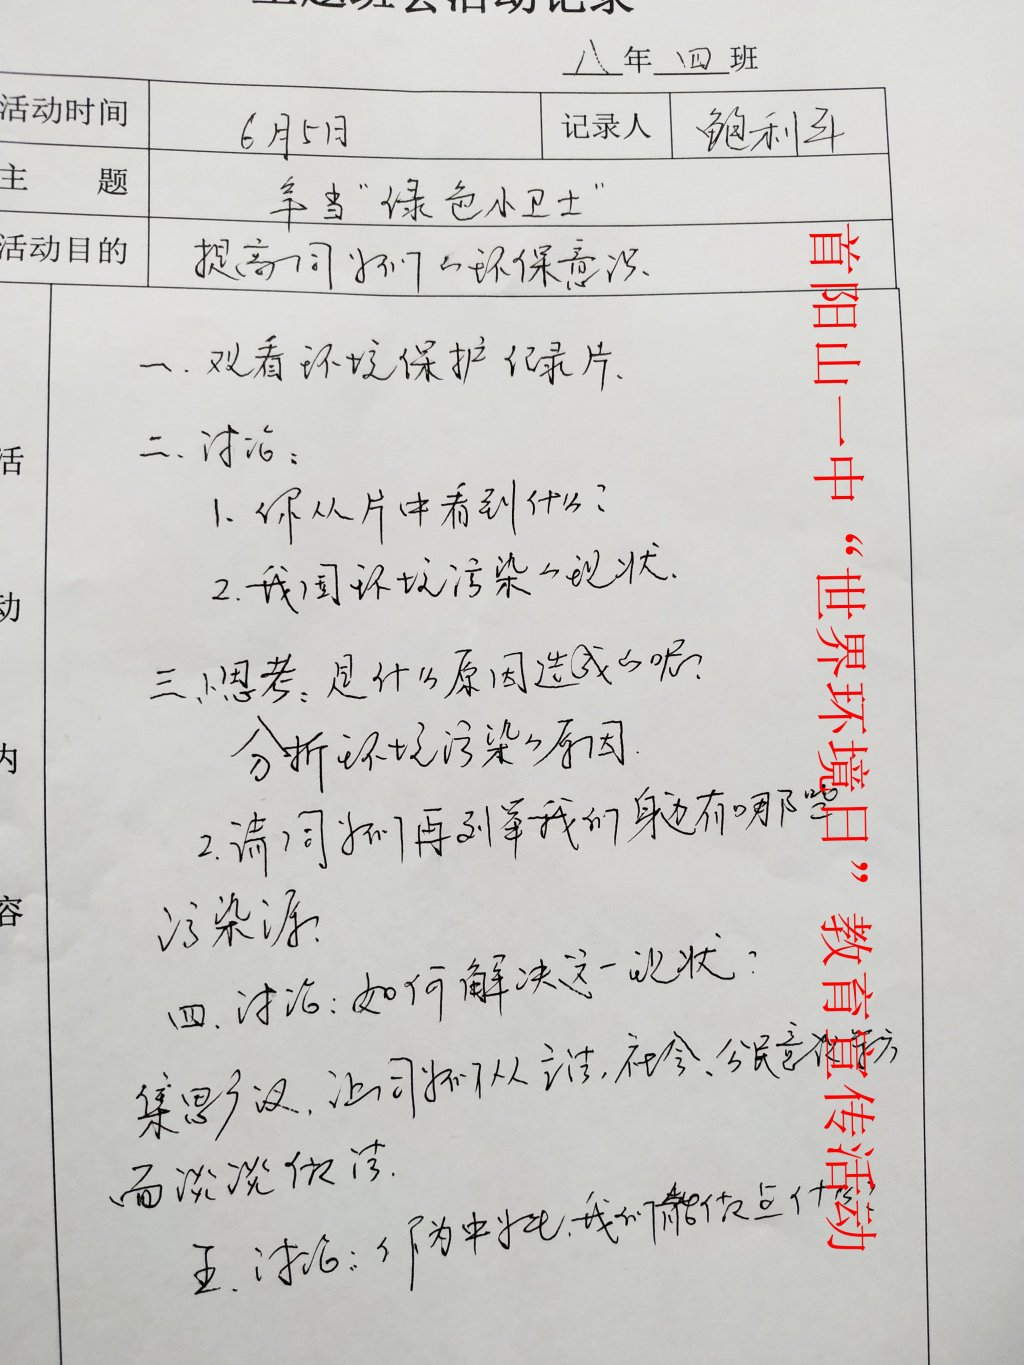 主题班会活动记录
八年四班
活动时间 6月5日 记录人 鲍利
主 题 争当“绿色小卫士”
活动目的 提高同学们的环保意识.
活动内容
一、观看环境保护纪录片.
二、讨论:
1. 你从片中看到什么?
2. 我国环境污染的现状.
三、1.思考: 是什么原因造成的呢?
分析环境污染的原因.
2. 请同学们再列举我们身边有哪些
污染源.
四、讨论: 如何解决这一现状?
集思广议, 让同学们从立法, 社会、公民意识等方
面谈谈做法.
五、讨论: 作为中学生, 我们能做点什么?
首阳山一中“世界环境日”教育宣传活动